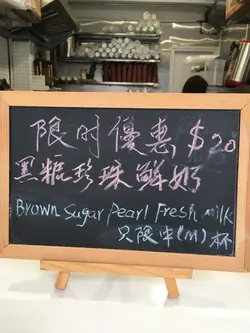 限时優惠, $20
黑糖珍珠鮮奶
Brown Sugar Pearl Fresh milk
只限中(M)杯